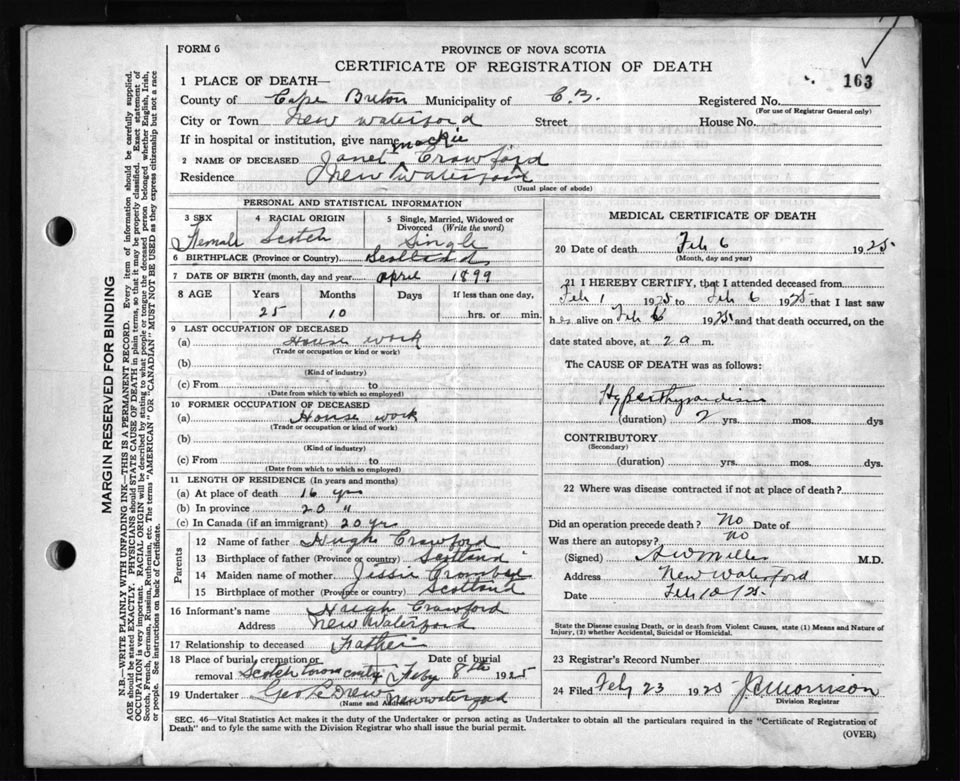 FORM 6
PROVINCE OF NOVA SCOTIA
CERTIFICATE OF REGISTRATION OF DEATH
163
1 PLACE OF DEATH—
County of Cape Breton Municipality of C.B. Registered No.
(For use of Registrar General only)
City or Town New Waterford Street House No.
If in hospital or institution, give name
2 NAME OF DECEASED Janet Mackie Crawford
Residence New Waterford
(Usual place of abode)
PERSONAL AND STATISTICAL INFORMATION
3 SEX Female
4 RACIAL ORIGIN Scotch
5 Single, Married, Widowed or Divorced (Write the word) Single
6 BIRTHPLACE (Province or Country) Scotland
7 DATE OF BIRTH (month, day and year) April 1899
8 AGE Years 25 Months 10 Days If less than one day, hrs. or min.
9 LAST OCCUPATION OF DECEASED
(a) House work
(Trade or occupation or kind or work)
(b)
(Kind of industry)
(c) From to
(Date from which to which so employed)
10 FORMER OCCUPATION OF DECEASED
(a) House work
(Trade or occupation or kind of work)
(b)
(Kind of industry)
(c) From to
(Date from which to which so employed)
11 LENGTH OF RESIDENCE (In years and months)
(a) At place of death 16 yrs
(b) In province 20 "
(c) In Canada (if an immigrant) 20 yrs
Parents
12 Name of father Hugh Crawford
13 Birthplace of father (Province or country) Scotland
14 Maiden name of mother Jessie
15 Birthplace of mother (Province or country) Scotland
16 Informant's name Hugh Crawford
Address New Waterford
17 Relationship to deceased Father
18 Place of burial, cremation or removal Scotch town Date of burial Feby 8th 1925
19 Undertaker Geo Drew New Waterford
(Name and Address)
MEDICAL CERTIFICATE OF DEATH
20 Date of death Feb 6 1925
(Month, day and year)
21 I HEREBY CERTIFY, that I attended deceased from
Feb 1 1925 to Feb 6 1925 that I last saw
her alive on Feb 6 1925 and that death occurred, on the
date stated above, at 2 a m.
The CAUSE OF DEATH was as follows:
Hyperthyroidism
(duration) 2 yrs. mos. dys
CONTRIBUTORY
(Secondary)
(duration) yrs. mos. dys.
22 Where was disease contracted if not at place of death?
Did an operation precede death? No Date of
Was there an autopsy? no
(Signed) A W Miller M.D.
Address New Waterford
Date Feb 10/25
State the Disease causing Death, or in death from Violent Causes, state (1) Means and Nature of
Injury, (2) whether Accidental, Suicidal or Homicidal.
23 Registrar's Record Number
24 Filed Feby 23 1925 Morrison
Division Registrar
SEC. 46—Vital Statistics Act makes it the duty of the Undertaker or person acting as Undertaker to obtain all the particulars required in the "Certificate of Registration of
Death" and to fyle the same with the Division Registrar who shall issue the burial permit.
(OVER)
MARGIN RESERVED FOR BINDING
N.B.—WRITE PLAINLY WITH UNFADING INK—THIS IS A PERMANENT RECORD. Every item of information should be carefully supplied.
AGE should be stated EXACTLY. PHYSICIANS should STATE CAUSE OF DEATH in plain terms, so that it may be properly classified. Exact statement of
OCCUPATION is very important. RACIAL ORIGIN will be described by stating to what people or tongue the deceased person belonged whether English, Irish,
Scotch, French, German, Russian, Ruthenian, etc. The terms "AMERICAN" OR "CANADIAN" MUST NOT BE USED as they express citizenship but not a race
or people. See instructions on back of Certificate.